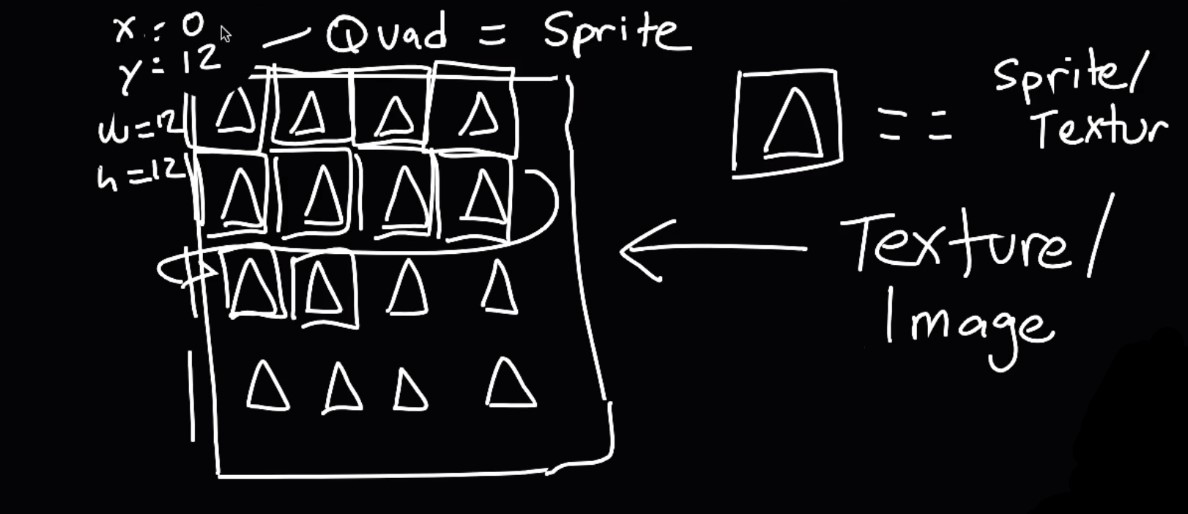 x : 0
y = 12
w = 12
h = 12
— Quad = Sprite
== Sprite/
Textur
Texture/
Image